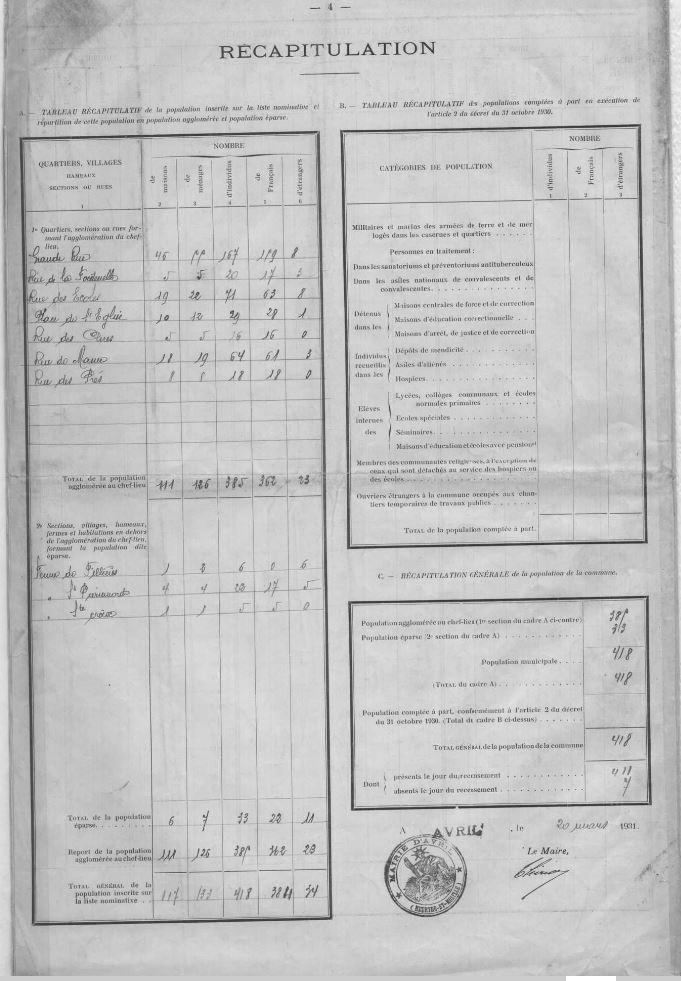 — 4 —
RÉCAPITULATION
A. — TABLEAU RÉCAPITULATIF de la population inscrite sur la liste nominative et
répartition de cette population en population agglomérée et population éparse.
QUARTIERS, VILLAGES
HAMEAUX
SECTIONS OU RUES
NOMBRE
de maisons
de ménages
d'individus
de Français
d'étrangers
1 2 3 4 5 6
1º Quartiers, sections ou rues for-
mant l'agglomération du chef-
lieu.
Grande Rue 45 167 159 8
Rue de la Fontenelle 5 5 20 17 3
Rue des Ecoles 19 22 71 63 8
Place de l'Eglise 10 12 29 28 1
Rue des 5 5 16 16 0
Rue de 18 19 64 61 3
Rue des Prés 8 8 18 18 0
TOTAL de la population
agglomérée au chef-lieu 111 126 385 362 23
2º Sections, villages, hameaux,
fermes et habitations en dehors
de l'agglomération du chef-lieu,
formant la population dite
éparse.
Ferme de 1 2 6 0 6
" 4 4 22 17 5
" Ste 1 1 5 5 0
TOTAL de la population
éparse. 6 7 33 22 11
Report de la population
agglomérée au chef-lieu 111 126 385 362 23
TOTAL GÉNÉRAL de la
population inscrite sur
la liste nominative 117 133 418 384 34
B. — TABLEAU RÉCAPITULATIF des populations comptées à part en exécution de
l'article 2 du décret du 31 octobre 1930.
CATÉGORIES DE POPULATION
NOMBRE
d'individus
de Français
d'étrangers
1 2 3
Militaires et marins des armées de terre et de mer
logés dans les casernes et quartiers
Personnes en traitement :
Dans les sanatoriums et préventoriums antituberculeux
Dans les asiles nationaux de convalescents et de
convalescentes.
Détenus dans les
Maisons centrales de force et de correction
Maisons d'éducation correctionnelle
Maisons d'arrêt, de justice et de correction
Individus recueillis dans les
Dépôts de mendicité
Asiles d'aliénés
Hospices
Elèves internes des
Lycées, collèges communaux et écoles
normales primaires
Ecoles spéciales
Séminaires
Maisons d'éducation et écoles avec pensionnat
Membres des communautés religieuses, à l'exception de
ceux qui sont détachés au service des hospices ou
des écoles
Ouvriers étrangers à la commune occupés aux chan-
tiers temporaires de travaux publics
TOTAL de la population comptée à part.
C. — RÉCAPITULATION GÉNÉRALE de la population de la commune.
Population agglomérée au chef-lieu (1re section du cadre A ci-contre) 385
Population éparse (2e section du cadre A) 33
Population municipale 418
(TOTAL du cadre A) 418
Population comptée à part, conformément à l'article 2 du décret
du 31 octobre 1930. (Total du cadre B ci-dessus)
TOTAL GÉNÉRAL de la population de la commune 418
Dont
présents le jour du recensement
absents le jour du recensement 7
A AVRIL, le 20 mars 1931.
Le Maire,
MAIRIE D'AVRIL
(MEURTHE-ET-MOSELLE)